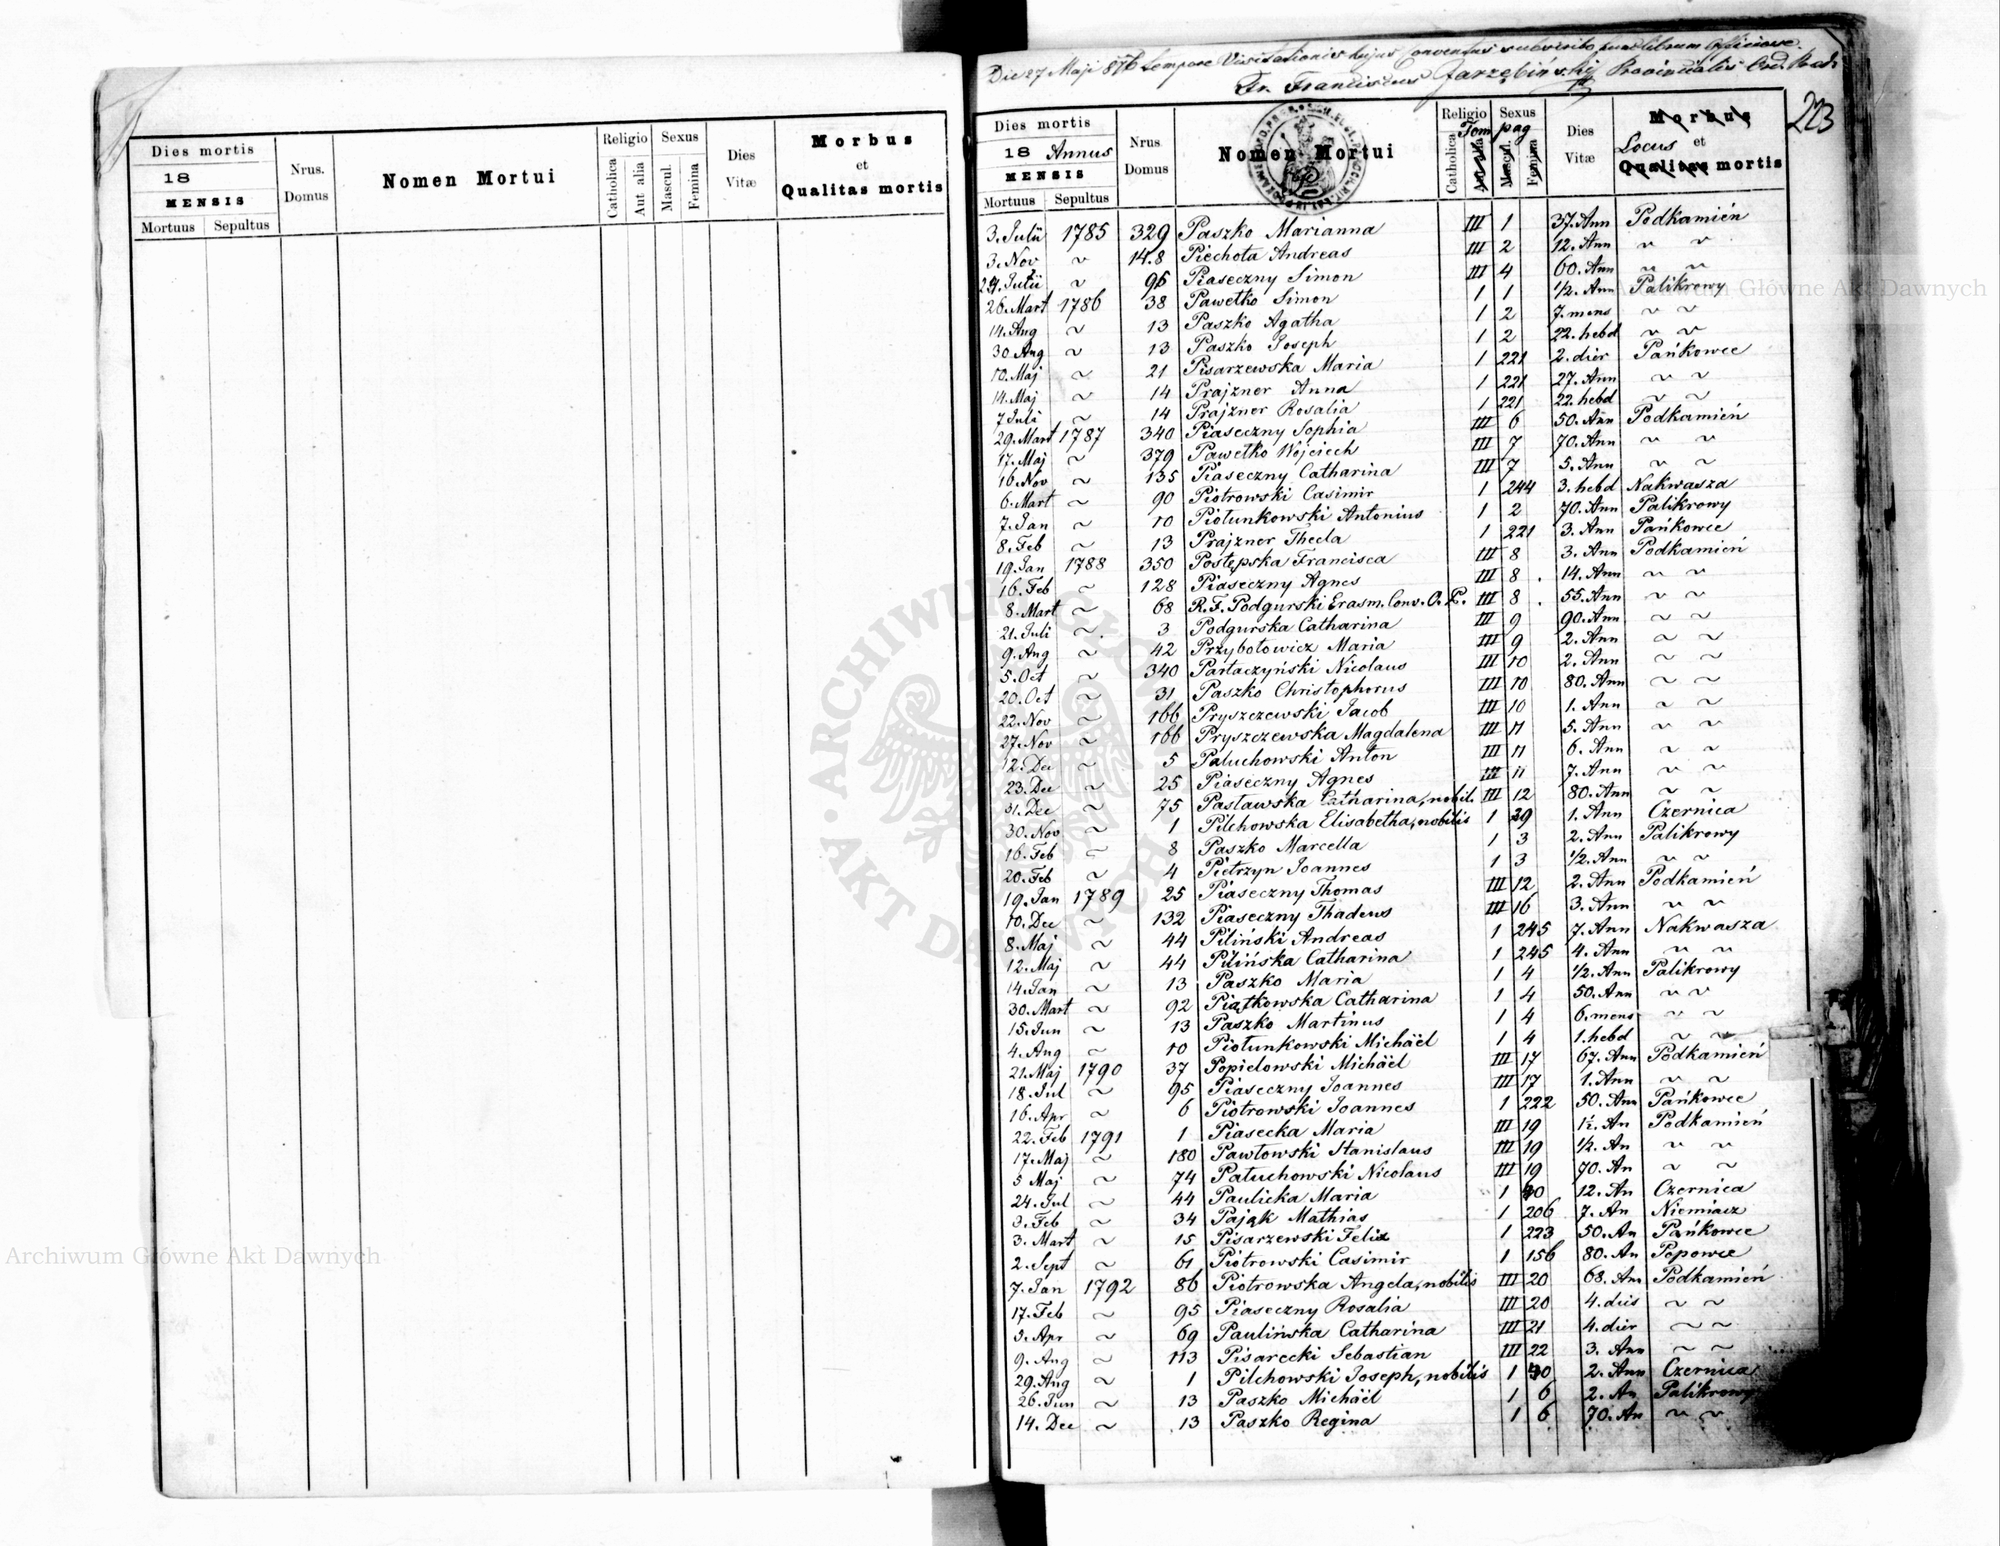 Dies mortis
18
MENSIS
Mortuus Sepultus
Nrus. Domus
Nomen Mortui
Religio
Catholica Aut alia
Sexus
Mascul. Femina
Dies Vitæ
Morbus
et
Qualitas mortis
Die 27 Maji 876 tempore Visitationis hujus Conventus subscribo hunc librum Officiose.
Fr. Franciscus Jarzębiński Provincialis Ord. Praed.
223
Dies mortis
18 Annus
MENSIS
Mortuus Sepultus
Nrus. Domus
Nomen Mortui
Religio Sexus
Tom pag
Catholica Aut alia Mascul. Femina
Dies Vitæ
Morbus
Locus et
Qualitas mortis
3. Julii 1785 329 Paszko Marianna III 1 37. Ann Podkamień
3. Nov ~ 148 Piechota Andreas III 2 12. Ann ~ ~
24. Julii ~ 95 Piaseczny Simon III 4 60. Ann ~ ~
26. Mart 1786 38 Pawełko Simon 1 1 1/2. Ann Palikrowy
14. Aug ~ 13 Paszko Agatha 1 2 7. mens ~ ~
30. Aug ~ 13 Paszko Joseph 1 2 22. hebd ~ ~
10. Maj ~ 21 Pisarzewska Maria 1 221 2. dier Pańkowce
14. Maj ~ 14 Prajzner Anna 1 221 27. Ann ~ ~
7 Julii ~ 14 Prajzner Rosalia 1 221 22. hebd ~ ~
29. Mart 1787 340 Piaseczny Sophia III 6 50. Ann Podkamień
17. Maj ~ 379 Pawełko Wojciech III 7 70. Ann ~ ~
10. Nov ~ 135 Piaseczny Catharina III 7 5. Ann ~ ~
6. Mart ~ 90 Piotrowski Casimir 1 244 3. hebd Nakwasza
7. Jan ~ 10 Piołunkowski Antonius 1 2 70. Ann Palikrowy
8. Feb ~ 13 Prajzner Thecla 1 221 3. Ann Pańkowce
19. Jan 1788 350 Postępska Francisca III 8 3. Ann Podkamień
16. Feb ~ 128 Piaseczny Agnes III 8 . 14. Ann ~ ~
8. Mart ~ 68 R. F. Podgurski Erasm. Conv. O. P. III 8 . 55. Ann ~ ~
21. Juli ~ 3 Podgurska Catharina III 9 90. Ann ~ ~
9. Aug ~ 42 Przybołowicz Maria III 9 2. Ann ~ ~
5. Oct ~ 340 Parłaczyński Nicolaus III 10 2. Ann ~ ~
20. Oct ~ 31 Paszko Christophorus III 10 80. Ann ~ ~
22. Nov ~ 166 Pryszczewski Jacob III 10 1. Ann ~ ~
27. Nov ~ 166 Pryszczewska Magdalena III 11 5. Ann ~ ~
12. Dec ~ 5 Pałuchowski Anton III 11 6. Ann ~ ~
23. Dec ~ 25 Piaseczny Agnes III 11 7. Ann ~ ~
31. Dec ~ 75 Pasławska Catharina, nobil. III 12 80. Ann ~ ~
30. Nov ~ 1 Pilchowska Elisabetha, nobilis 1 39 1. Ann Czernica
16. Feb ~ 8 Paszko Marcella 1 3 2. Ann Palikrowy
20. Feb ~ 4 Pietrzyn Joannes 1 3 1/2. Ann ~ ~
19. Jan 1789 25 Piaseczny Thomas III 12 2. Ann Podkamień
10. Dec ~ 132 Piaseczny Thadeus III 16 3. Ann ~ ~
8. Maj ~ 44 Piliński Andreas 1 245 7. Ann Nakwasza
12. Maj ~ 44 Pilińska Catharina 1 245 4. Ann ~ ~
14. Jan ~ 13 Paszko Maria 1 4 1/2. Ann Palikrowy
30. Mart ~ 92 Piątkowska Catharina 1 4 50. Ann ~ ~
15. Jun ~ 13 Paszko Martinus 1 4 6. mens ~ ~
4. Aug ~ 10 Piołunkowski Michäel 1 4 1. hebd ~ ~
21. Maj 1790 37 Popielowski Michäel III 17 67. Ann Podkamień
18. Jul ~ 95 Piaseczny Joannes III 17 1. Ann ~ ~
16. Apr ~ 6 Piotrowski Joannes 1 222 50. Ann Pańkowce
22. Feb 1791 1 Piasecka Maria III 19 1½. An Podkamień
17. Maj ~ 180 Pawłowski Stanislaus III 19 1/2. An ~ ~
5 Maj ~ 74 Pałuchowski Nicolaus III 19 70. An ~ ~
24. Jul ~ 44 Paulicka Maria 1 40 12. An Czernica
3. Feb ~ 34 Pająk Mathias 1 206 7. An Niemiacz
3. Mart ~ 15 Pisarzewski Felix 1 223 50. An Pańkowce
2. Sept ~ 61 Piotrowski Casimir 1 156 80. An Popowce
7. Jan 1792 86 Piotrowska Angela, nobilis III 20 68. An Podkamień
17. Feb ~ 95 Piaseczny Rosalia III 20 4. dies ~ ~
3. Apr ~ 69 Paulińska Catharina III 21 4. dier ~ ~
9. Aug ~ 113 Pisarecki Sebastian III 22 3. Ann ~ ~
29. Aug ~ 1 Pilchowski Joseph, nobilis 1 40 2. Ann Czernica
26. Jun ~ 13 Paszko Michäel 1 6 2. An Palikrowy
14. Dec ~ 13 Paszko Regina 1 6 70. An ~ ~
Archiwum Główne Akt Dawnych
Archiwum Główne Akt Dawnych
ARCHIWUM GŁÓWNE AKT DAWNYCH